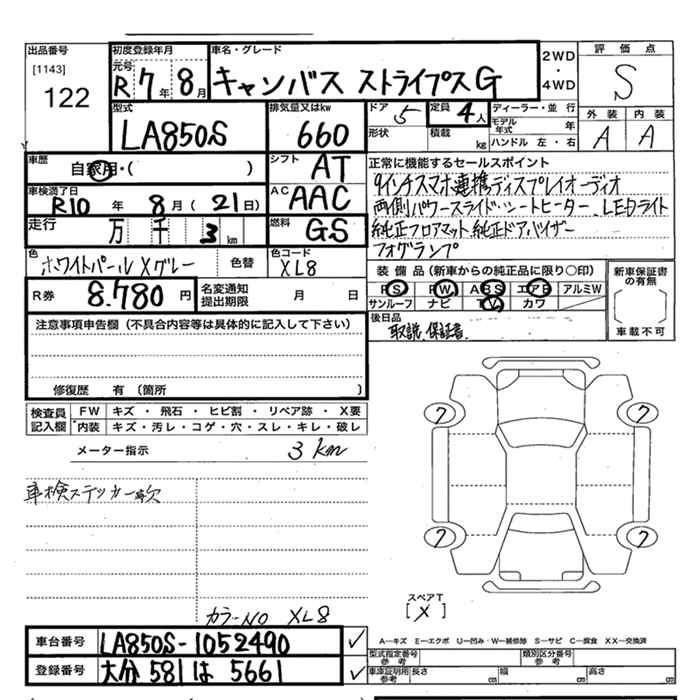 出品番号
[1143]
122
初度登録年月
元号
R 7年 8月
車名・グレード
キャンバス ストライプスG
2WD
・
4WD
評価点
S
型式
LA850S
排気量又はkw
660
ドア 5
形状
定員 4人
積載 kg
ディーラー・並行
モデル年式 年
ハンドル 左・右
外装 内装
A A
車歴
自家用・( )
シフト AT
車検満了日
R10年 8月(21日)
AC AAC
走行
万 千 3 km
燃料 GS
正常に機能するセールスポイント
9インチスマホ連携ディスプレイオーディオ
両側パワースライド・シートヒーター LEDライト
純正フロアマット 純正ドアバイザー
フォグランプ
色
ホワイトパール Xグレー 色替
色コード
XL8
R券 8.780 円
名変通知
提出期限
月 日
装備品(新車からの純正品に限り○印)
PS PW ABS エアB アルミW
サンルーフ ナビ TV カワ
新車保証書
の有無
車載不可
後日品
取説 保証書
注意事項申告欄(不具合内容等は具体的に記入して下さい)
修復歴 有 (箇所 )
検査員
記入欄
FW キズ・飛石・ヒビ割・リペア跡・X要
内装 キズ・汚レ・コゲ・穴・スレ・キレ・破レ
メーター指示 3 km
車検ステッカー欠
7 7
7 7
カラーNO XL8
スペアT
[X]
A―キズ E―エクボ U―凹み・W―補修跡 S―サビ C―腐食 XX―交換済
車台番号 LA850S-1052490
登録番号 大分 581 は 5661
型式指定番号
参考
類別区分番号
参考
車庫証明用
参考
長さ cm 幅 cm 高さ cm